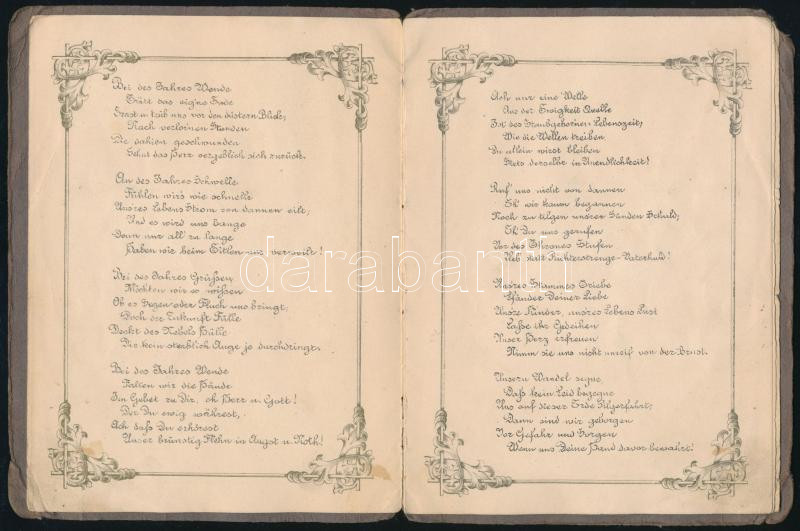 Bei des Jahres Wende
Führt das eig'ne Ende
Ernst u. trüb uns vor den düstern Blick;
Nach verlornen Stunden
Die dahien geschwunden
Sehnt das Herz vergeblich sich zurück.
An des Jahres Schwelle
Fühlen wir's wie schnelle
Unsres Lebens Strom von dannen eilt;
Und es wird uns bange
Denn nur all' zu lange
Haben wir beim Eitlen uns verweilt!
Bei des Jahres Grüssen
Möchten wir es wissen
Ob es Segen oder Fluch uns bringt;
Doch der Zukunft Fülle
Deckt des Nebels Hülle
Die kein sterblich Auge je durchdringt.
Bei des Jahres Wende
Falten wir die Hände
Im Gebet zu Dir, oh Herr u. Gott!
Der Du ewig währest,
Ach daß Du erhörest
Unser brünstig Flehn in Angst u. Noth!
Ach nur eine Welle
Aus der Ewigkeit Quelle
Ist des Staubgebornen Lebenszeit;
Wie die Wellen treiben
Du allein wirst bleiben
Stets derselbe in Unendlichkeit!
Ruf' uns nicht von dannen
Eh' wir kaum begannen
Noch zu tilgen unsrer Sünden Schuld;
Eh' Du uns gerufen
Vor des Thrones Stufen
Üeb' statt Richterstrenge Vaterhuld!
Unsres Stammes Triebe
Pfänder Deiner Liebe
Unsre Kinder, unsres Lebens Lust
Laße ihr Gedeihen
Unser Herz erfreuen
Nimm sie uns nicht unreif von der Brust.
Unsern Wandel segne
Daß kein Leid begegne
Uns auf dieser Erde Pilgerfahrt;
Dann sind wir geborgen
Vor Gefahr und Sorgen
Wenn uns Deine Hand davor bewahrt!
darabanth